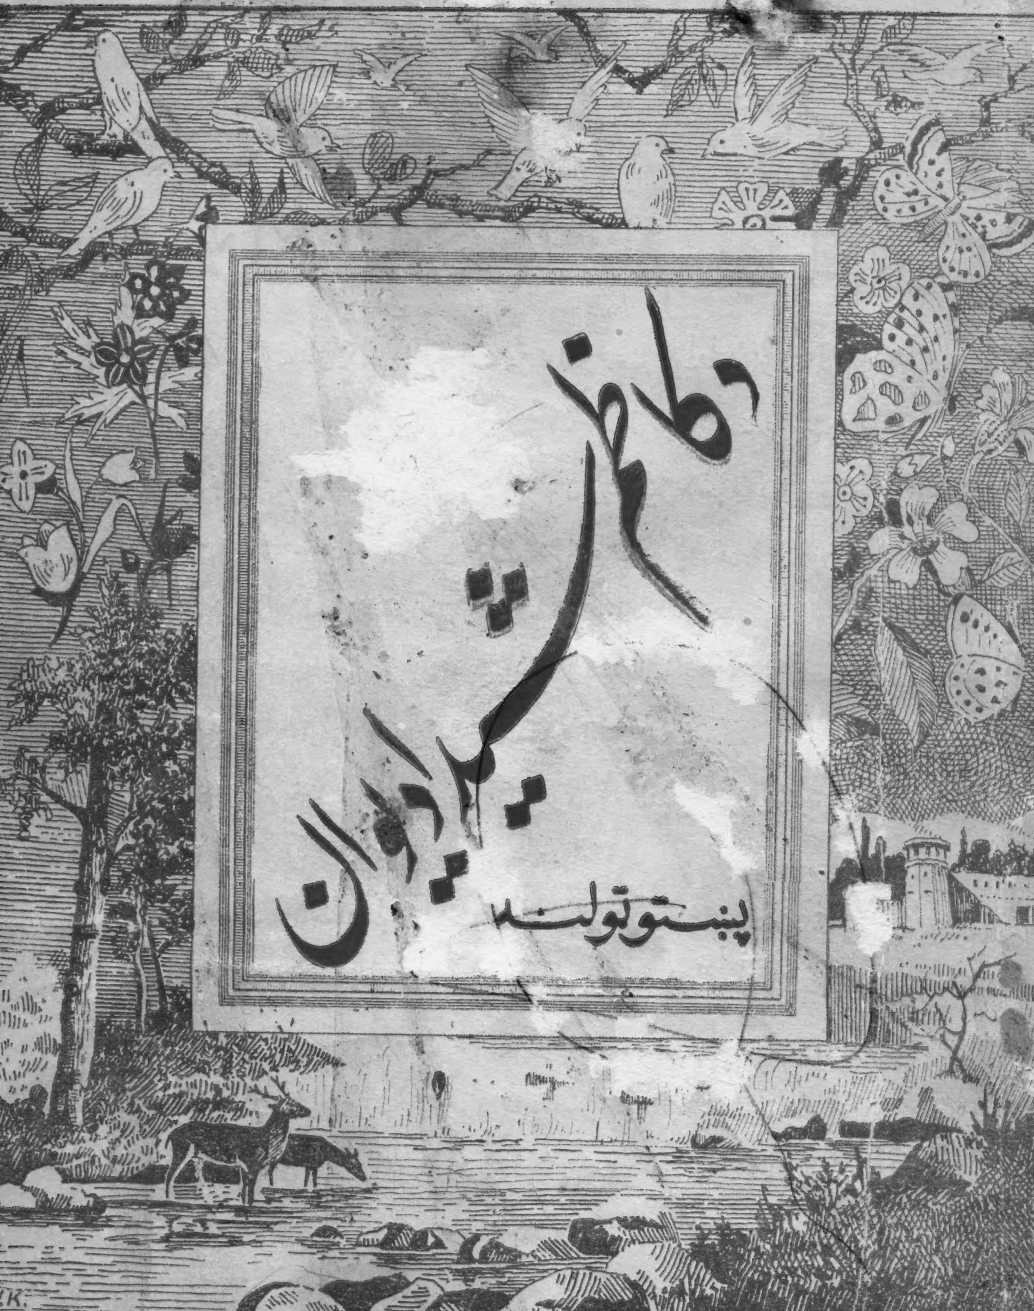 د کاظم شیدا دیوان
پښتو ټولنه